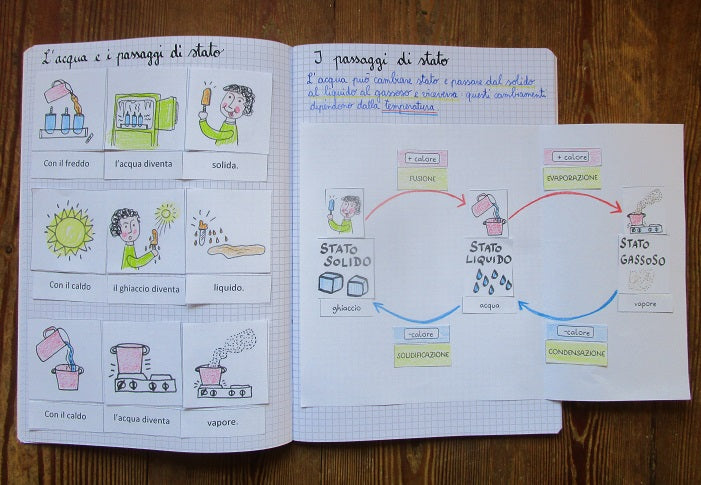 L'acqua e i passaggi di stato
Con il freddo
l'acqua diventa
solida.
Con il caldo
il ghiaccio diventa
liquido.
Con il caldo
l'acqua diventa
vapore.
I passaggi di stato
L'acqua può cambiare stato e passare dal solido
al liquido al gassoso e viceversa: questi cambiamenti
dipendono dalla temperatura.
+ calore
FUSIONE
+ calore
EVAPORAZIONE
STATO
SOLIDO
ghiaccio
STATO
LIQUIDO
acqua
STATO
GASSOSO
vapore
-calore
SOLIDIFICAZIONE
-calore
CONDENSAZIONE